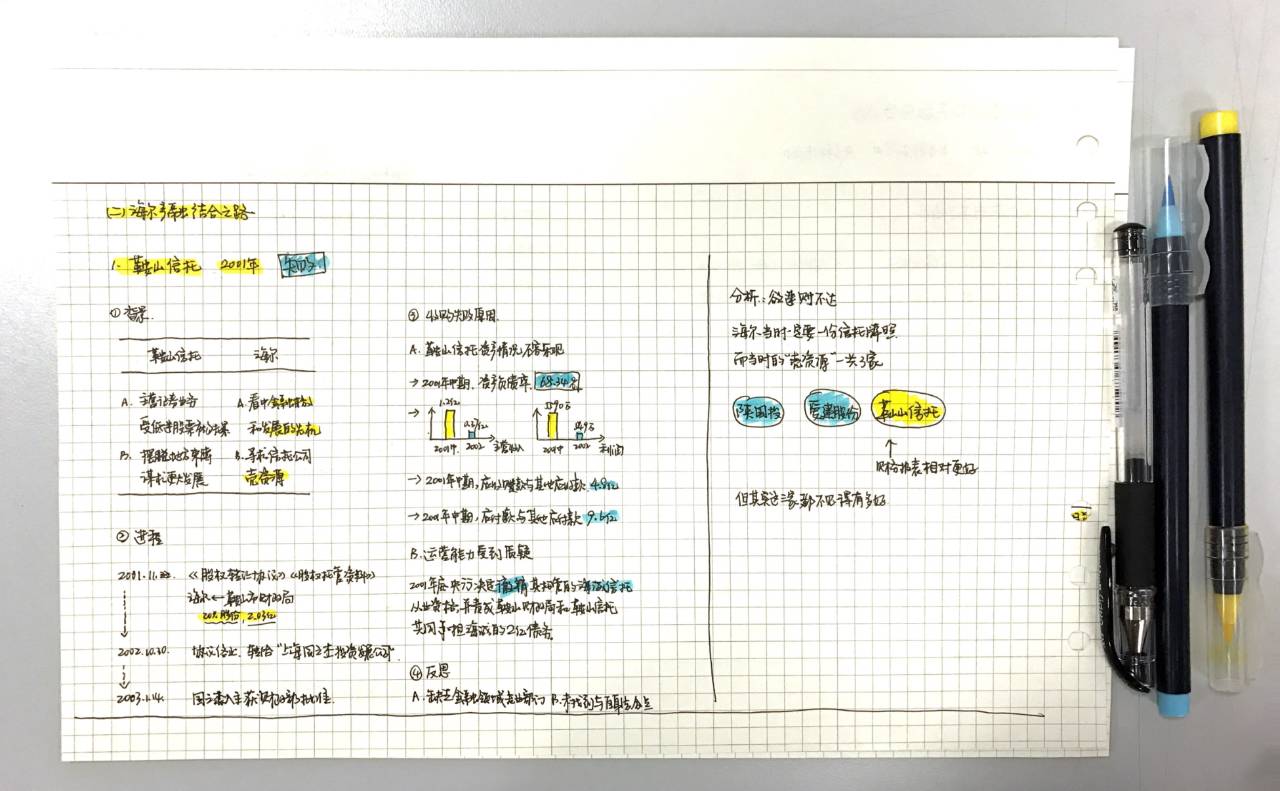 (二) 海尔产融结合之路
1. 鞍山信托 2001年 失败
① 背景.
鞍山信托 海尔
A. 主营证券业务 A. 看中金融业
受低迷股票市场拖累 和发展的危机
B. 摆脱地方束缚 B. 寻求信托公司
谋求更大发展 壳资源
② 进程
2001.11. 《股权转让协议》《股权托管
海尔 ← 鞍山市财政局
20%股份, 2.03亿
2002.10.30. 协议终止, 转给“上海国之杰投资发展公司”.
2003.1.14. 国之杰入主获财政部批准.
③ 收购失败原因.
A. 鞍山信托资产情况不容乐观
→ 2001年中期, 资产负债率, 68.34%
2001中 2002 主营收入
2001中 2002 利润
→ 2001年中期, 应收账款与其他应收款 4.8亿
→ 2001年中期, 应付款与其他应付款 9.6亿
B. 运营能力受到质疑
2001年底央行决定撤销其托管的海城信托
从业资格, 并责成鞍山财政局和鞍山信托
共同承担海城的2亿债务.
④ 反思
A. 缺乏金融领域专业部门 B. 未找到与自身结合点
分析: 欲速则不达
海尔当时是要一份信托牌照.
而当时的“壳资源”一共3家
陕国投 爱建股份 鞍山信托
↑
财务报表相对更好
但其实这三家都不见得有多好.